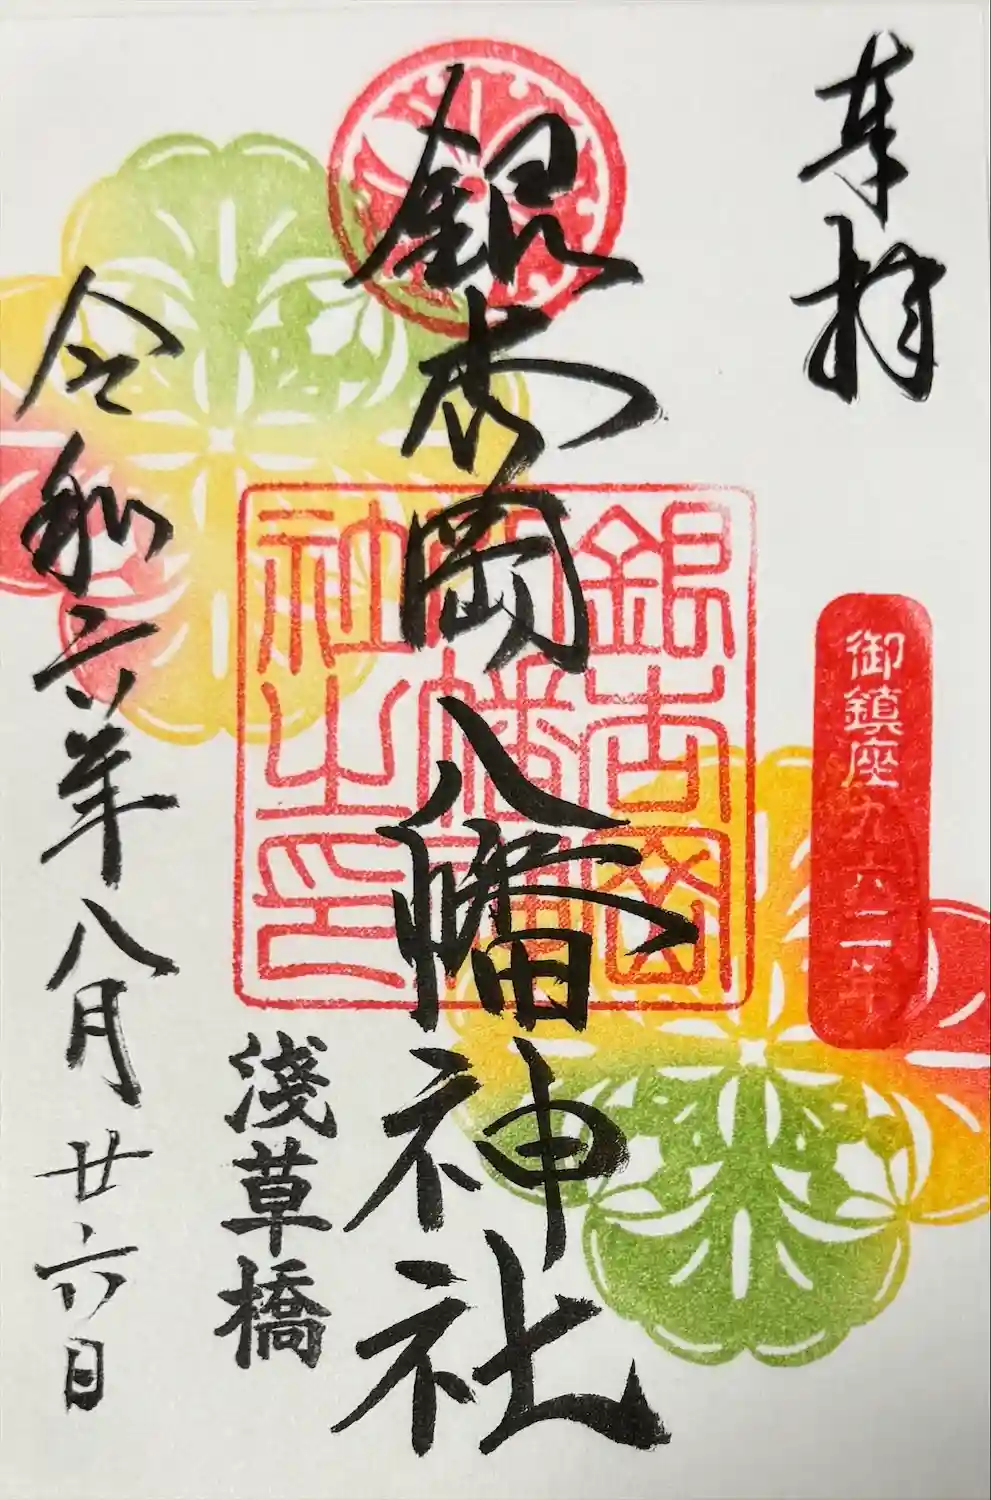 奉拝
御鎮座九六二年
銀杏岡八幡神社
銀杏岡
八幡神
社之印
淺草橋
令和六年八月廿六日